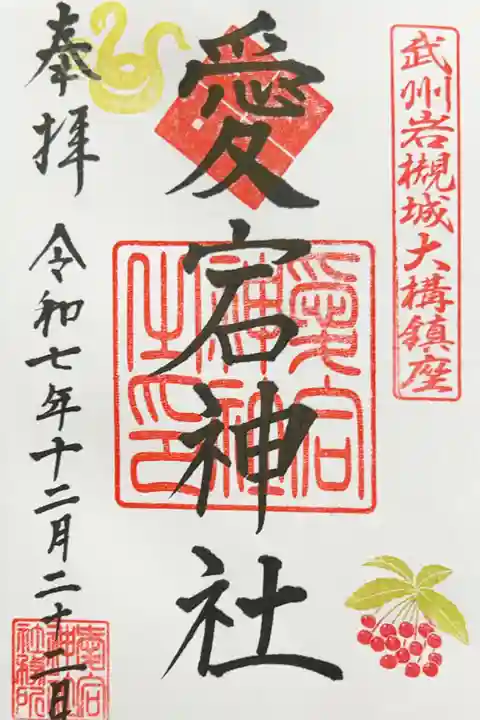 武州岩槻城大構鎮座
愛宕神社
愛宕神社之印
奉拝
令和七年十二月二十二日
愛宕神社務所